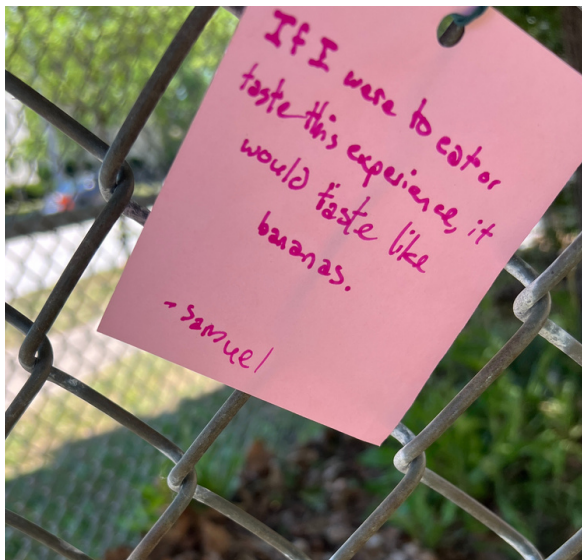 If I were to eat or
taste this experience, it
would taste like
bananas.
- samuel